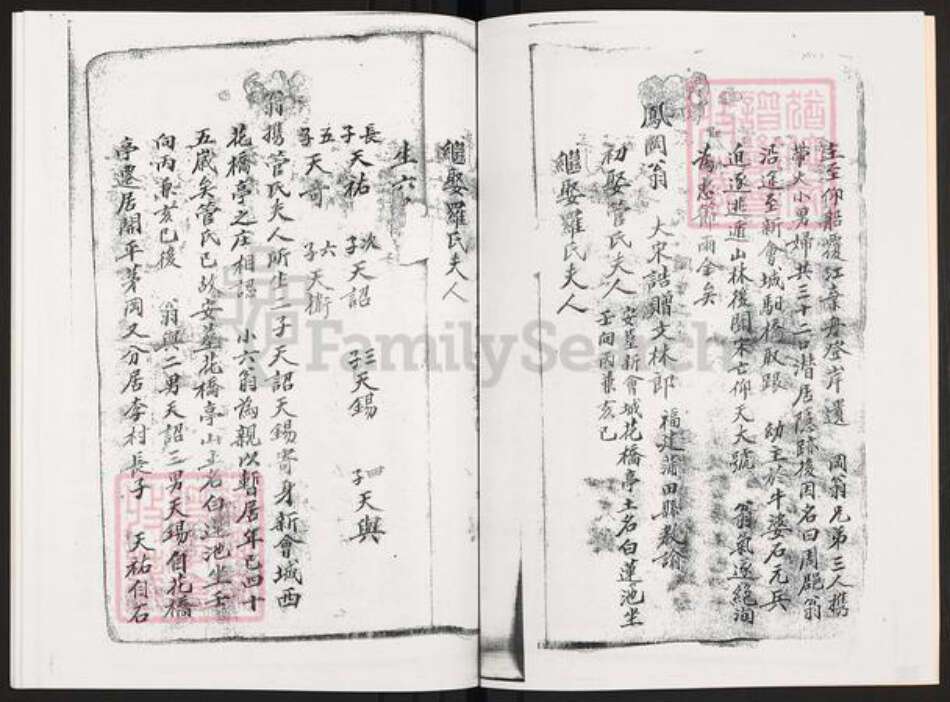 至仰船覆江幸君登岸遺 岡翁兄弟三人携
帶大小男婦共三十二口潛居隱跡後因名曰周郡翁
沿途至新會城馹橋取跟 幼主於牛婆石元兵
近逐進遁山林後聞宋亡仰天大號 翁氣遂絕洵
為忠節兩全矣
鳳岡翁 大宋誥贈文林郎 福建蒲田縣教諭
初娶管氏夫人 安墓新會城花橋亭土名白蓮池坐
壬向丙兼亥巳
繼娶羅氏夫人
繼娶羅氏夫人
生六
長子天祐 次子天詔 三子天錫 四子天與
五子天奇 六子天衛
翁携管氏夫人所生二子天詔天錫寄身新會城西
花橋亭之庄相認 小六翁為親以暫居年已四十
五歲矣管氏已故安墓花橋亭山土名白蓮池坐壬
向丙兼亥巳後 翁與二男天詔三男天錫自花橋
亭遷居開平茅岡又分居李村長子 天祐自石
FamilySearch